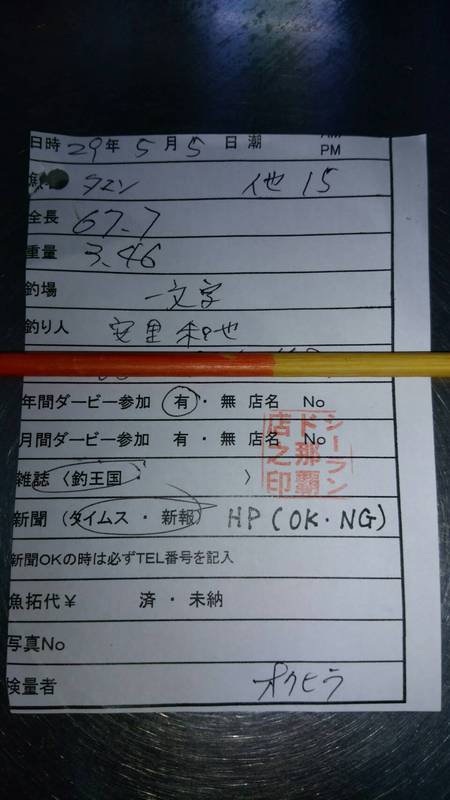 日時 29年 5月 5日 潮 AM PM
魚 タマン 他 15
全長 67.7
重量 3.46
釣場 一文字
釣り人 安里 和也
年間ダービー参加 有・無 店名 No
月間ダービー参加 有・無 店名 No
雑誌〈釣王国 〉
新聞(タイムス・新報) HP(OK・NG)
シーランド那覇店之印
新聞OKの時は必ずTEL番号を記入
魚拓代¥ 済・未納
写真No
検量者 オクヒラ